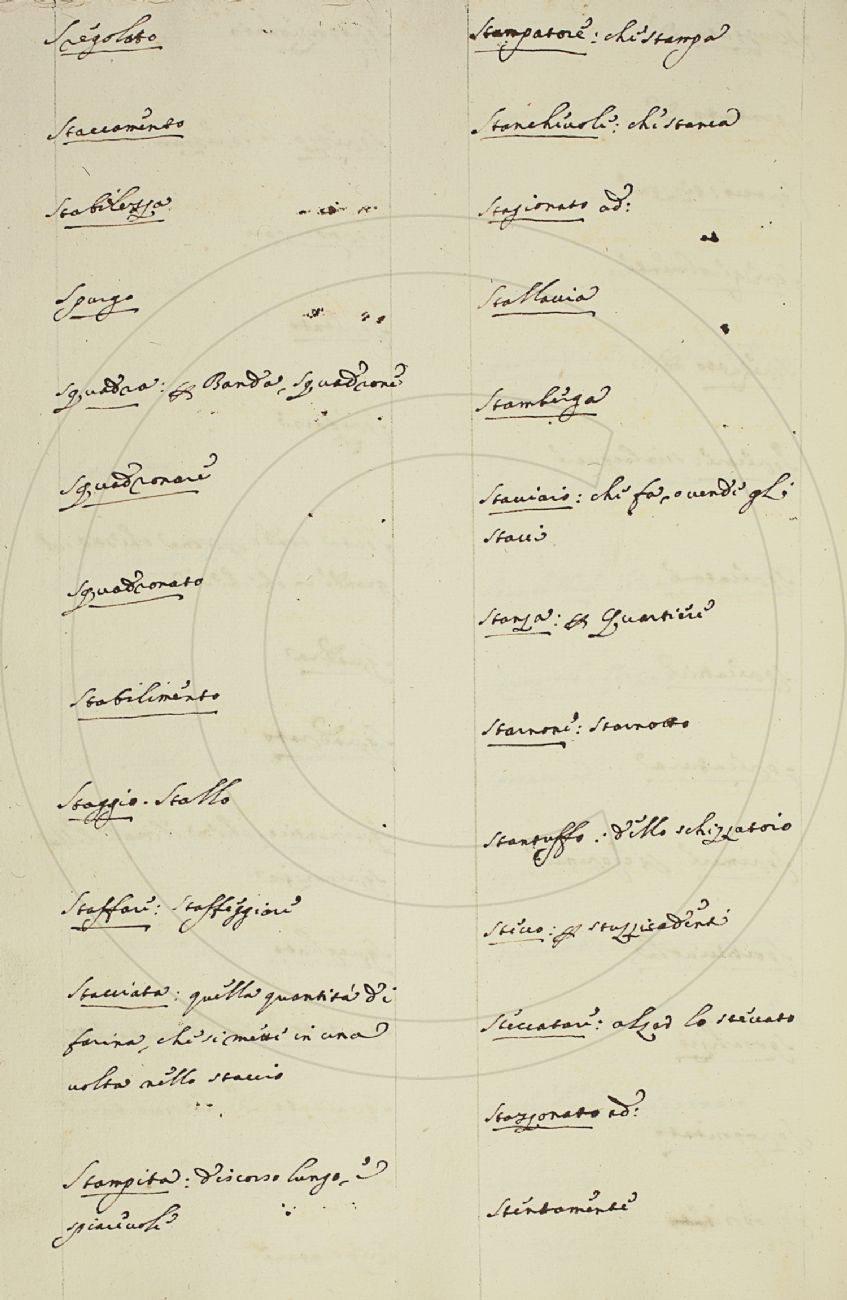 Sregolato
Staccamento
Stabilezza
Spurgo
Squadra: Banda, Squadrone
Squadronare
Squadronato
Stabilimento
Staggio. Stallo
Staffare: Staffeggiare
Stacciata: quella quantità di
farina, che si mette in una
volta nello staccio
Stampita: discorso lungo, e
spiacevole
Stampatore: che stampa
Stanchevole: che stanca
Stagionato ad:
Stallavia
Stamberga
Stacciaio: che fa, o vende gli
stacci
Stanza: Quartiere
Starnone: Starnotto
Stantuffo: dello schizzatoio
Stecco: stuzzicadenti
Steccatare: alzar lo steccato
Stazzonato ad:
Stentamente